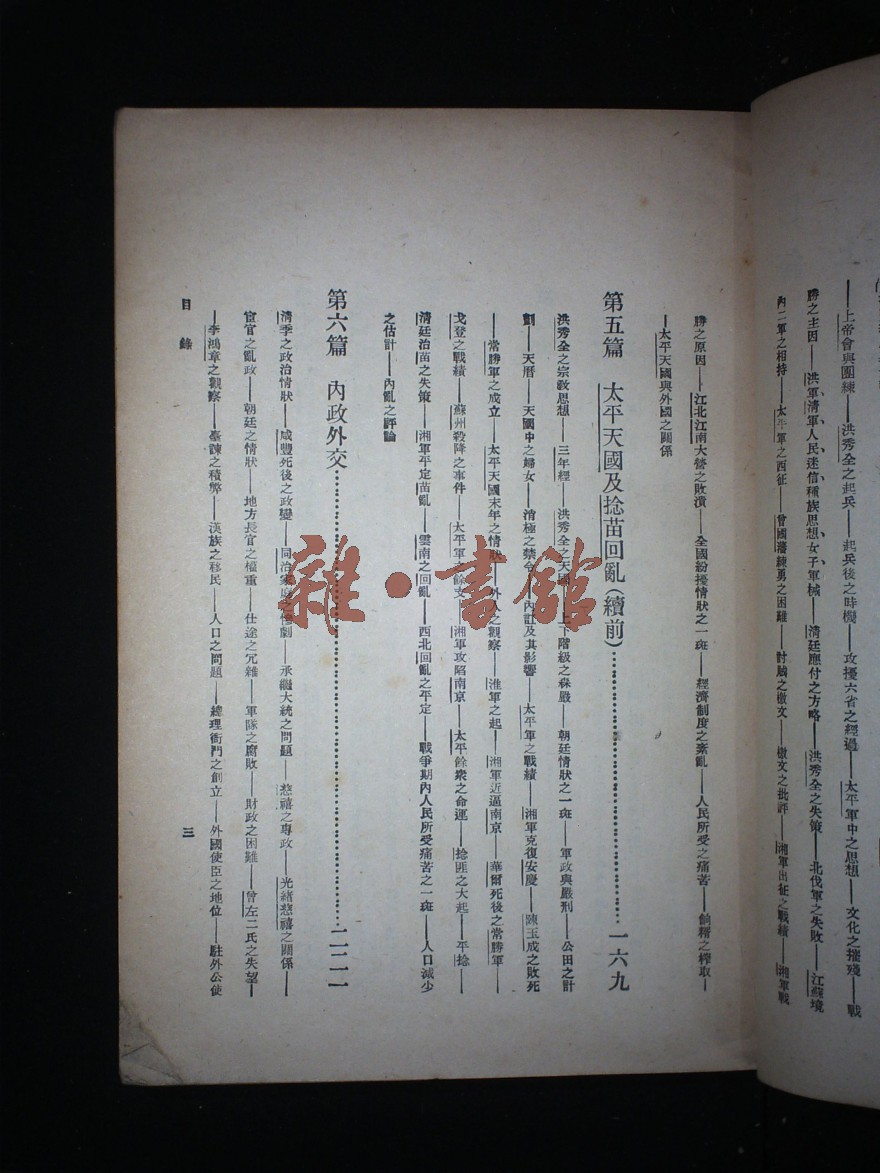 ——上帝會與團練——洪秀全之起兵——起兵後之時機——攻擾六省之經過——太平軍中之思想——文化之摧殘——戰
勝之主因——洪軍、清軍、人民、迷信、種族思想、女子、軍械——清廷應付之方略——洪秀全之失策——北伐軍之失敗——江蘇境
內二軍之相持——太平軍之西征——曾國藩練勇之困難——討賊之檄文——檄文之批評——湘軍出征之戰績——湘軍戰
勝之原因——江北江南大營之敗潰——全國紛擾情狀之一斑——經濟制度之紊亂——人民所受之痛苦——餉糈之榨取—
—太平天國與外國之關係
第五篇 太平天國及捻苗回亂(續前)……一六九
洪秀全之宗教思想——三年經——洪秀全之天國——上下階級之森嚴——朝廷情狀之一斑——軍政與嚴刑——公田之計
劃——天曆——天國中之婦女——清極之禁令——內訌及其影響——太平軍之戰績——湘軍克復安慶——陳玉成之敗死
——常勝軍之成立——太平天國末年之情狀——外人之觀察——淮軍之起——湘軍近逼南京——華爾死後之常勝軍—
戈登之戰績——蘇州殺降之事件——太平軍之餘支——湘軍攻陷南京——太平餘衆之命運——捻匪之大起——平捻—
清廷治苗之失策——湘軍平定苗亂——雲南之回亂——西北回亂之平定——戰爭期內人民所受痛苦之一斑——人口減少
之估計——內亂之評論
第六篇 內政外交……二二一
清季之政治情狀——咸豐死後之政變——同治家庭之慘劇——承繼大統之問題——慈禧之專政——光緒慈禧之關係—
宦官之亂政——朝廷之情狀——地方長官之權重——仕途之冗雜——軍隊之腐敗——財政之困難——曾左二氏之失望—
—李鴻章之觀察——臺諫之積弊——漢族之移民——人口之問題——總理衙門之創立——外國使臣之地位——駐外公使
目錄
三
雜·書館